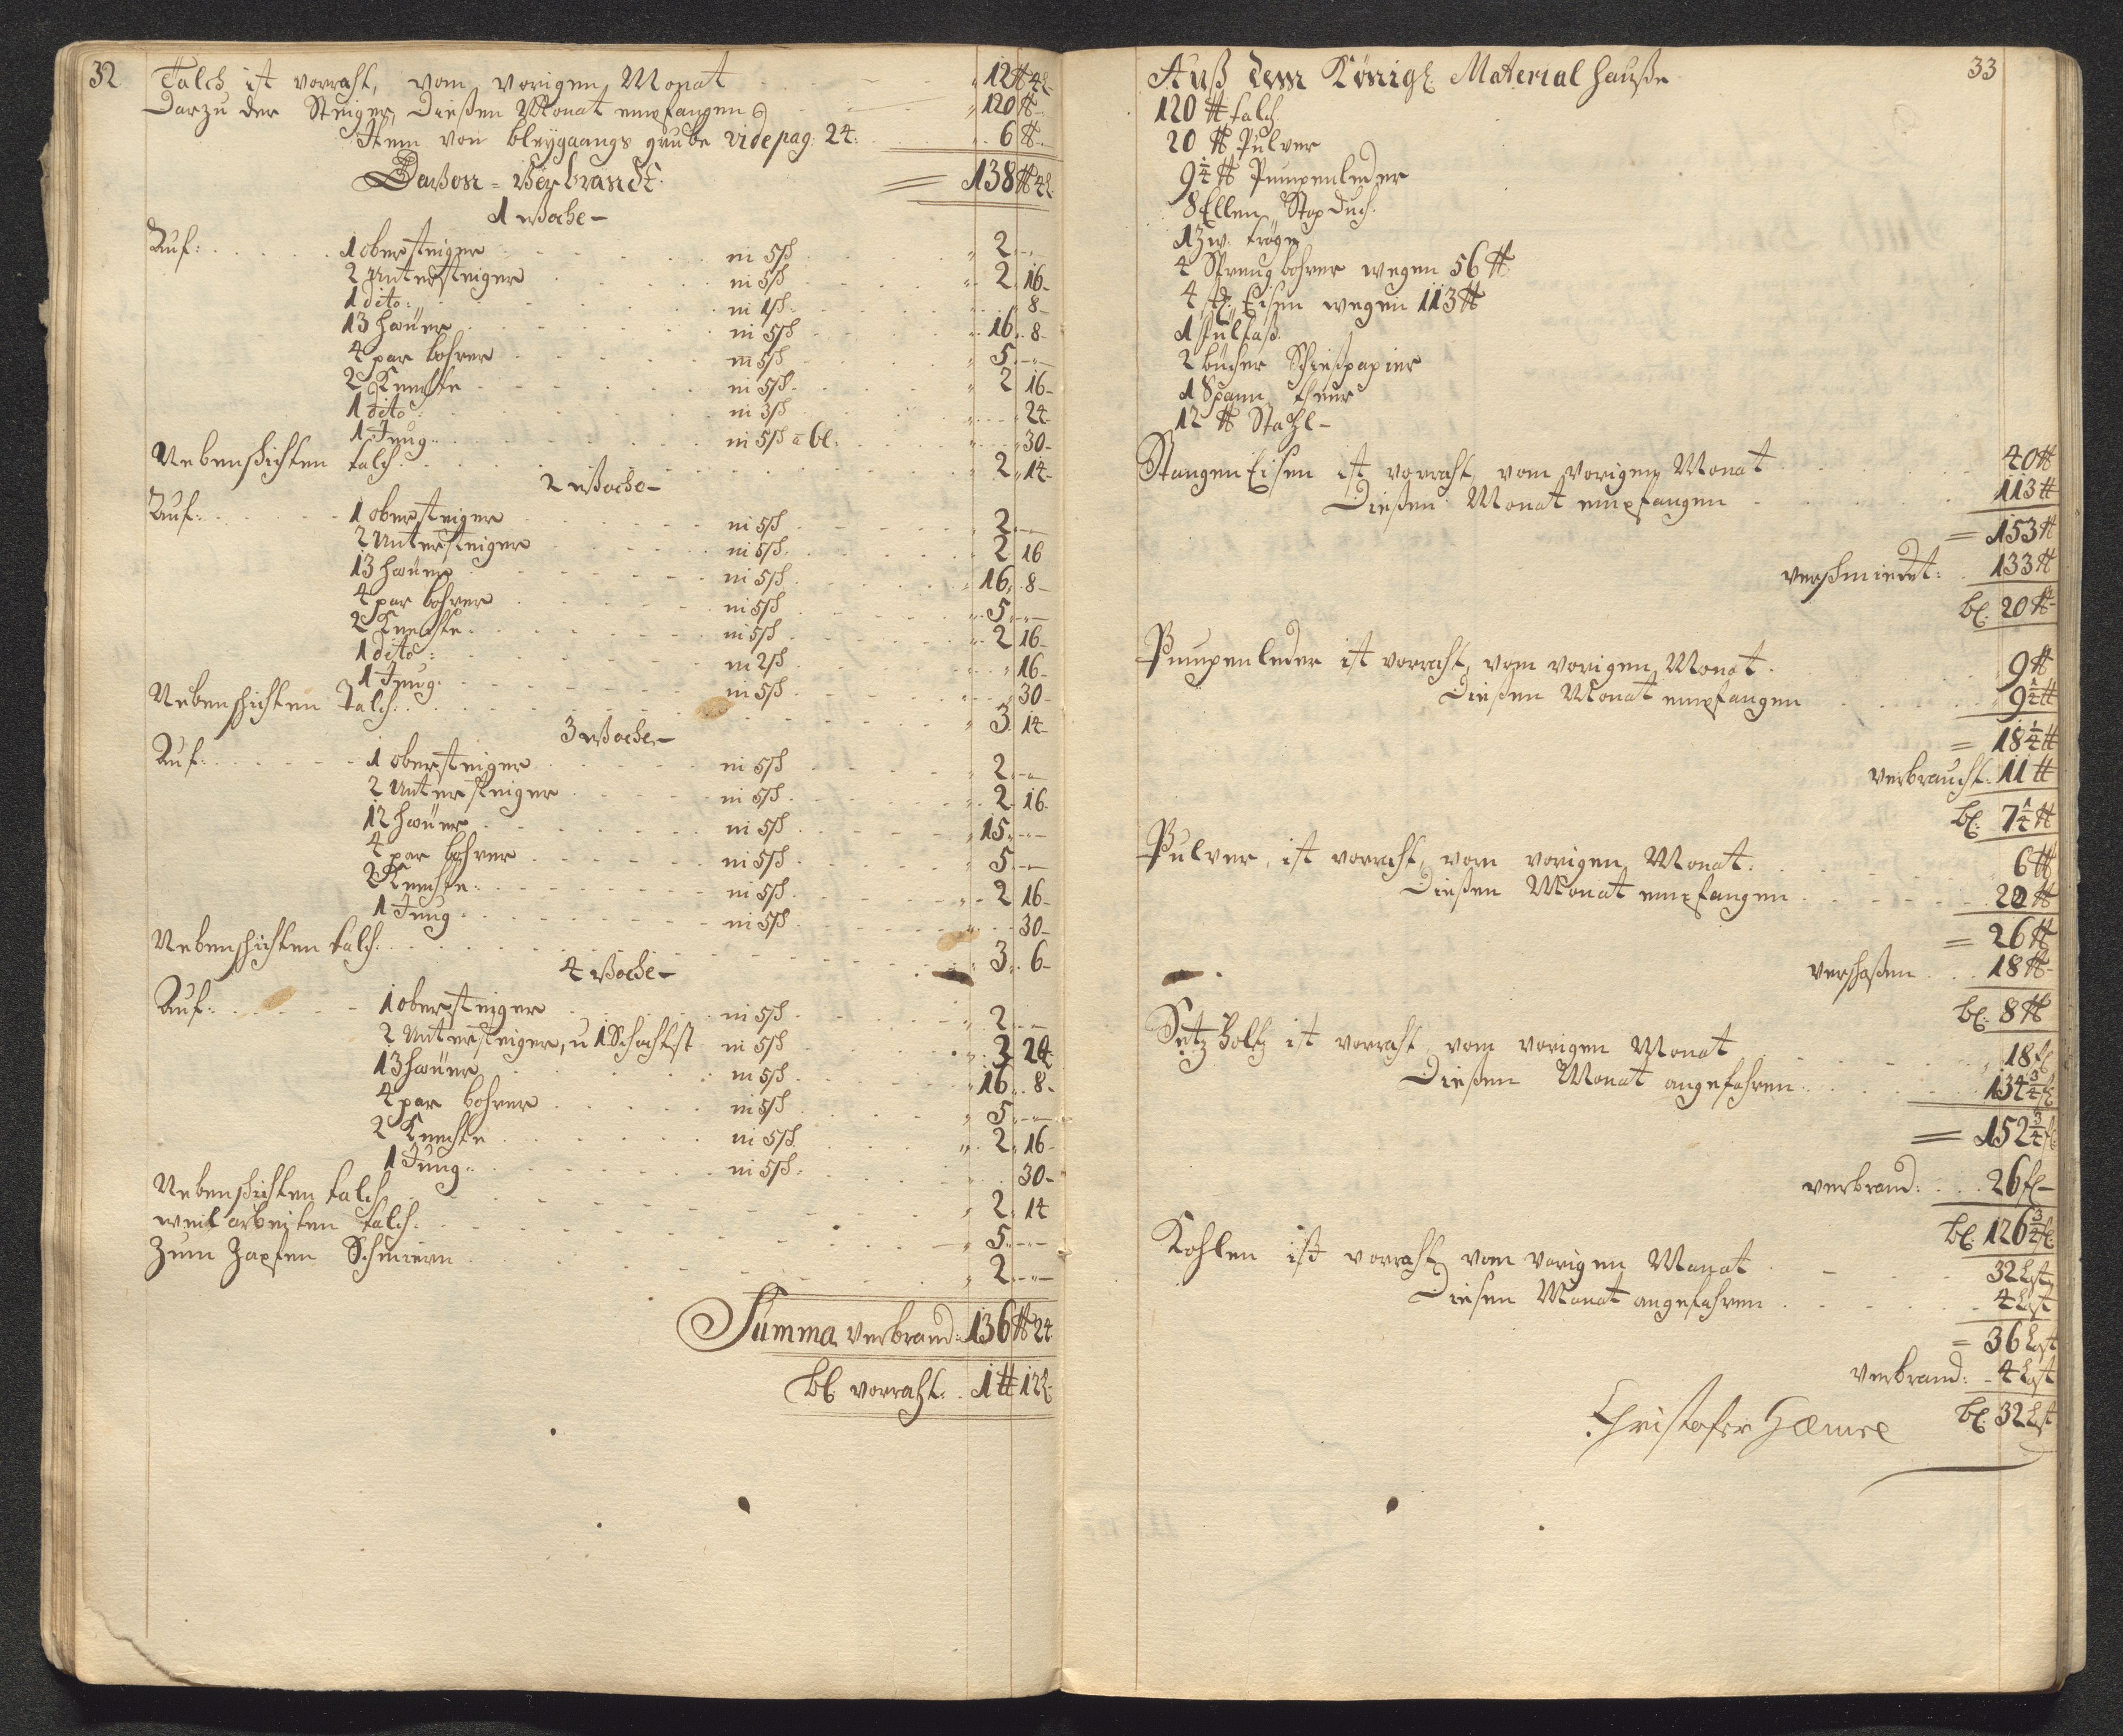 32
Talch ist vorraht, vom vorigen Monat 12 ℔ 4 l
Darzu der Steiger, Dießen Monat empfangen 120 ℔
Item von bleygaangs grube vide pag: 24: 6 ℔
Darvon = Verbrandt = 138 ℔ 4 l
1 Woche
Auf: 1 obersteiger in 5 sch 2
2 Untersteiger in 5 sch 2 16
1 dito: in 1 sch: 8
13 hauer in 5 sch 16 8
4 par bohrer in 5 sch 5
2 Knechte in 5 sch 2 16
1 dito: in 3 sch 24
1 Jung in 5 sch a 6 l: 30
Nebenschichten talch 2 14
2 Woche
Auf: 1 obersteiger in 5 sch 2
2 Untersteiger in 5 sch 2 16
13 hauer in 5 sch 16 8
4 par bohrer in 5 sch 5
2 Knechte in 5 sch 2 16
1 dito: in 2 sch 16
1 Jung in 5 sch 30
Nebenschichten Talch 3 14
3 Woche
Auf: 1 obersteiger in 5 sch 2
2 Untersteiger in 5 sch 2 16
12 hauer in 5 sch 15
4 par bohrer in 5 sch 5
2 Knechte in 5 sch 2 16
1 Jung in 5 sch 30
Nebenschichten talch 3 6
4 Woche
Auf: 1 obersteiger in 5 sch 2
2 Untersteiger, u 1 Schachtst in 5 sch 3 24
13 hauer in 5 sch 16 8
4 par bohrer in 5 sch 5
2 Knechte in 5 sch 2 16
1 Jung in 5 sch 30
Nebenschichten talch 2 14
weil arbeiten talch 5
Zum Zapfen Schmiern 2
Summa verbrand: 136 ℔ 24
bl vorraht: 1 ℔ 12 l
33
Auß dem Königl: Material hauße
120 ℔ talch
20 ℔ Pulver
9 1/4 ℔ Pumpenleder
8 Ellen Stop duch
1 Zw: tröge
4 Sprengbohrer wegen 56 ℔
4 st: Eisen wegen 113 ℔
1 Pulfaß
2 bücher Schießpapier
1 Spann theer
12 ℔ Stahl
Stangen Eisen ist vorraht, vom vorigen Monat 40 ℔
Dießen Monat empfangen 113 ℔
= 153 ℔
verschmiedet: 133 ℔
bl: 20 ℔
Pumpenleder ist vorraht, vom vorigen Monat 9 ℔
Dießen Monat empfangen 9 1/4 ℔
= 18 1/4 ℔
verbraucht: 11 ℔
bl: 7 1/4 ℔
Pulver, ist vorraht, vom vorigen Monat 6 ℔
Dießen Monat empfangen 20 ℔
= 26 ℔
verschoßen 18 ℔
bl: 8 ℔
Setz holtz ist vorraht vom vorigen Monat 18 fl
Dießen Monat angefahren 134 3/4 fl
= 152 3/4 fl
verbrand: 26 fl
bl 126 3/4 fl
Kohlen ist vorraht vom vorigen Monat 32 Last
Diesen Monat angefahren 4 Last
= 36 Last
verbrand: 4 Last
bl: 32 Last
Christofer